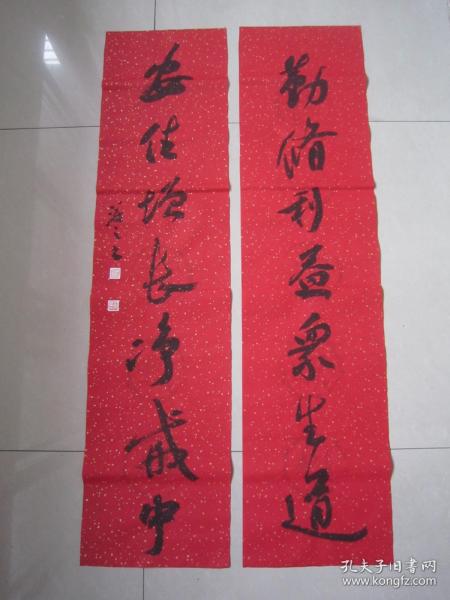 勤脩利益眾生道
安住增長淨戒中
孔夫子旧书网
www.kongfz.com